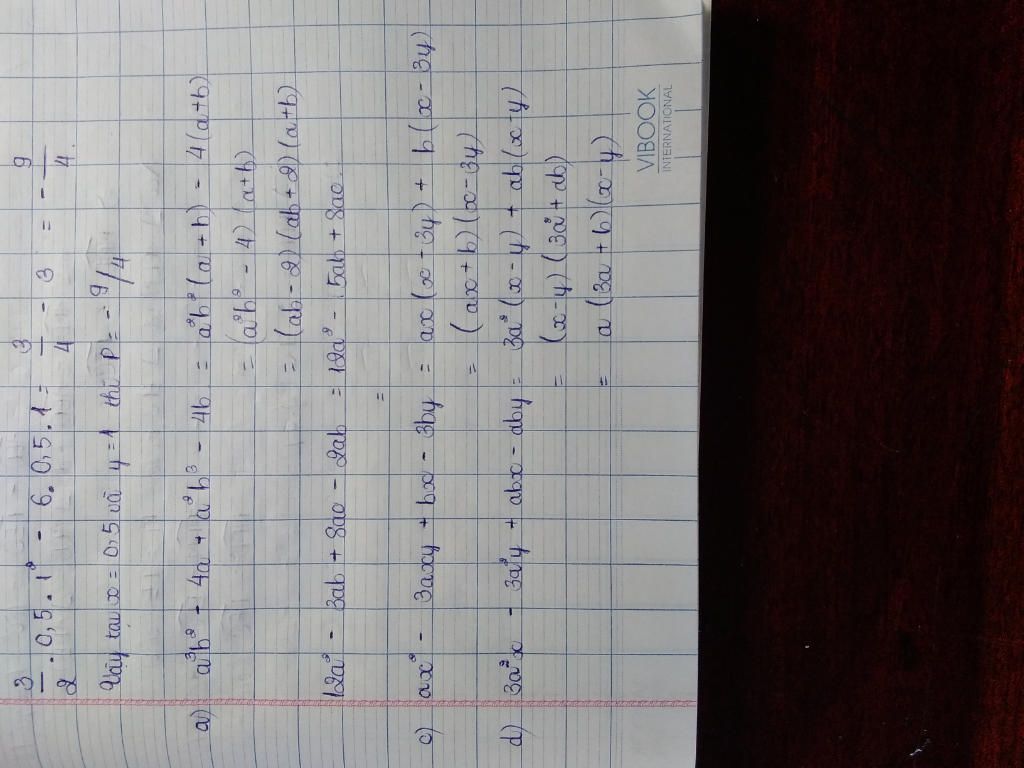 3/2 . 0,5 . 1² - 6 . 0,5 . 1 = 3/4 - 3 = - 9/4.
Vậy tại x = 0,5 và y = 1 thì P = - 9/4
a) a³b² - 4a + a²b³ - 4b = a²b² (a + b) - 4 (a+b)
= (a²b² - 4) (a+b)
= (ab - 2) (ab + 2) (a+b)
12a² - 3ab + 8ac - 2ab = 12a² - 5ab + 8ac.
=
c) ax² - 3axy + bx - 3by = ax (x - 3y) + b (x - 3y)
= (ax + b) (x - 3y)
d) 3a²x - 3a²y + abx - aby = 3a² (x - y) + ab (x - y)
= (x - y) (3a² + ab)
= a (3a + b) (x - y)
VIBOOK
INTERNATIONAL